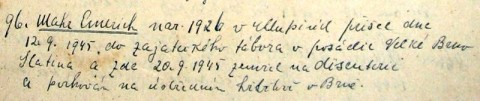 96. Make Emerich nar. 1926 v přišel dne
12.9.1945, do zajateckého tábora v posádce Velké Brno
Slatina a zde 20.9.1945 zemřel na disenterii
a pochován na ústředním hřbitově v Brně.